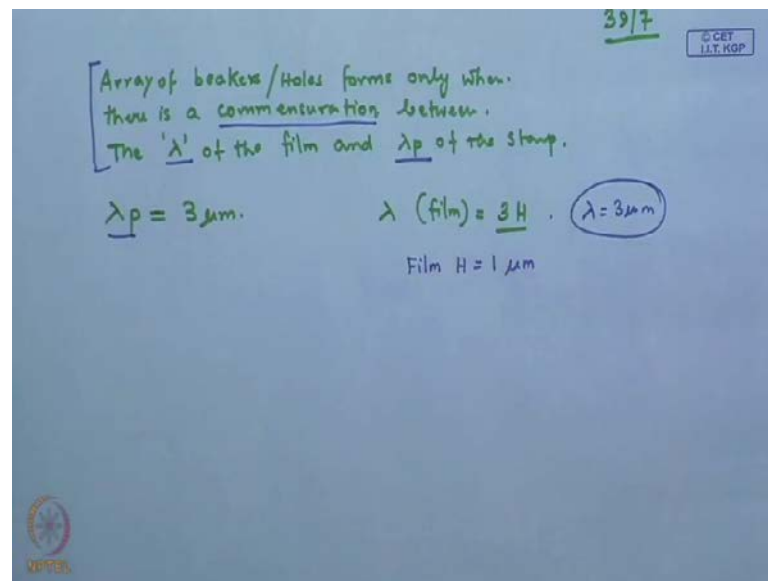 39/7
© CET
I.I.T. KGP
Array of beakers/Holes forms only when.
there is a commensuration between.
The 'λ' of the film and λp of the stamp.
λp = 3 μm. λ (film) = 3H . λ = 3μm
Film H = 1 μm
NPTEL